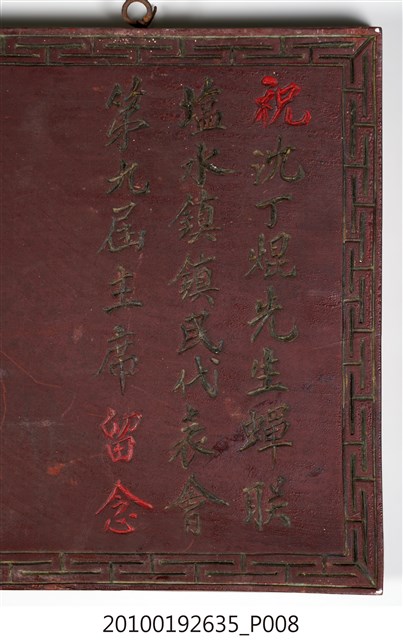 祝沈丁焜先生蟬聯
塩水鎮鎮民代表會
第九屆主席留念
20100192635_P008